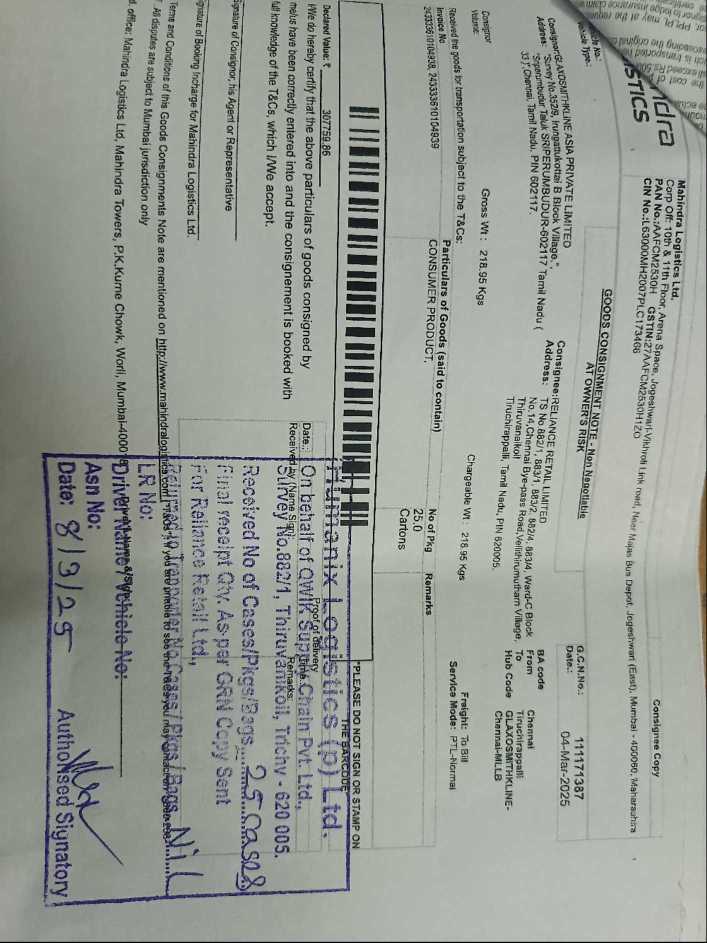 Mahindra Logistics Ltd.
Consignee Copy
Corp Off: 10th & 11th Floor, Arena Space, Jogeshwari-Vikhroli Link road, Near Majas Bus Depot, Jogeshwari (East), Mumbai - 400060, Maharashtra
PAN No.:AAFCM2530H GSTIN:27AAFCM2530H1ZO
CIN No.:L63000MH2007PLC173466
GOODS CONSIGNMENT NOTE - Non Negotiable
AT OWNER'S RISK
G.C.N.No.: 111171387
Date.: 04-Mar-2025
Consignor:GLAXOSMITHKLINE ASIA PRIVATE LIMITED
Address: "Survey No.352/8, Irungattukottai B Block Village,"
"Sriperumbudur Taluk SRIPERUMBUDUR-602117 Tamil Nadu (
33 ),Chennai, Tamil Nadu, PIN 602117.
Consignee:RELIANCE RETAIL LIMITED
Address: TS No.882/1, 883/1, 883/2, 882/4, 883/4, Ward-C Block
No.14,Chennai Bye-pass Road,Vellithirumutham Village,
Thiruvanaikoil
Tiruchirappalli, Tamil Nadu, PIN 620005.
BA code
From Chennai
To Tiruchirappalli
Hub Code GLAXOSMITHKLINE-
Chennai-MLLB
Consignor
Volume:
Gross Wt : 218.95 Kgs
Chargeable Wt : 218.95 Kgs
Freight: To Bill
Service Mode: PTL-Normal
Received the goods for transportation subject to the T&Cs:
Invoice No
Particulars of Goods (said to contain)
No of Pkg
Remarks
243333610104938, 243333610104939
CONSUMER PRODUCT,
25.0
Cartons
*PLEASE DO NOT SIGN OR STAMP ON
THE BARCODE
Declared Value: ₹ 307759.86
I/We do hereby certify that the above particulars of goods consigned by
me/us have been correctly entered into and the consignement is booked with
full knowledge of the T&Cs, which I/We accept.
Signature of Consignor, his Agent or Representative
Signature of Booking Incharge for Mahindra Logistics Ltd.
Proof of delivery
Date.:
Received by (Name Sign):
Remarks:
Humanix Logistics (p) Ltd.
On behalf of QWIK Supply Chain Pvt. Ltd.,
Survey No.882/1, Thiruvanikoil, Trichy - 620 005.
Received No of Cases/Pkgs/Bags 25 Cases
Final receipt Qty. As per GRN Copy Sent
For Reliance Retail Ltd.,
Returned to Transporter No.Cases / Pkgs / Bags NIL
LR No:
Driver Name Vehicle No:
Asn No:
Date: 8/3/25 Authorised Signatory
Terms and Conditions of this Goods Consignments Note are mentioned on http://www.mahindralogistics.com
All disputes are subject to Mumbai jurisdiction only
d. office: Mahindra Logistics Ltd, Mahindra Towers, P.K.Kurne Chowk, Worli, Mumbai-400018